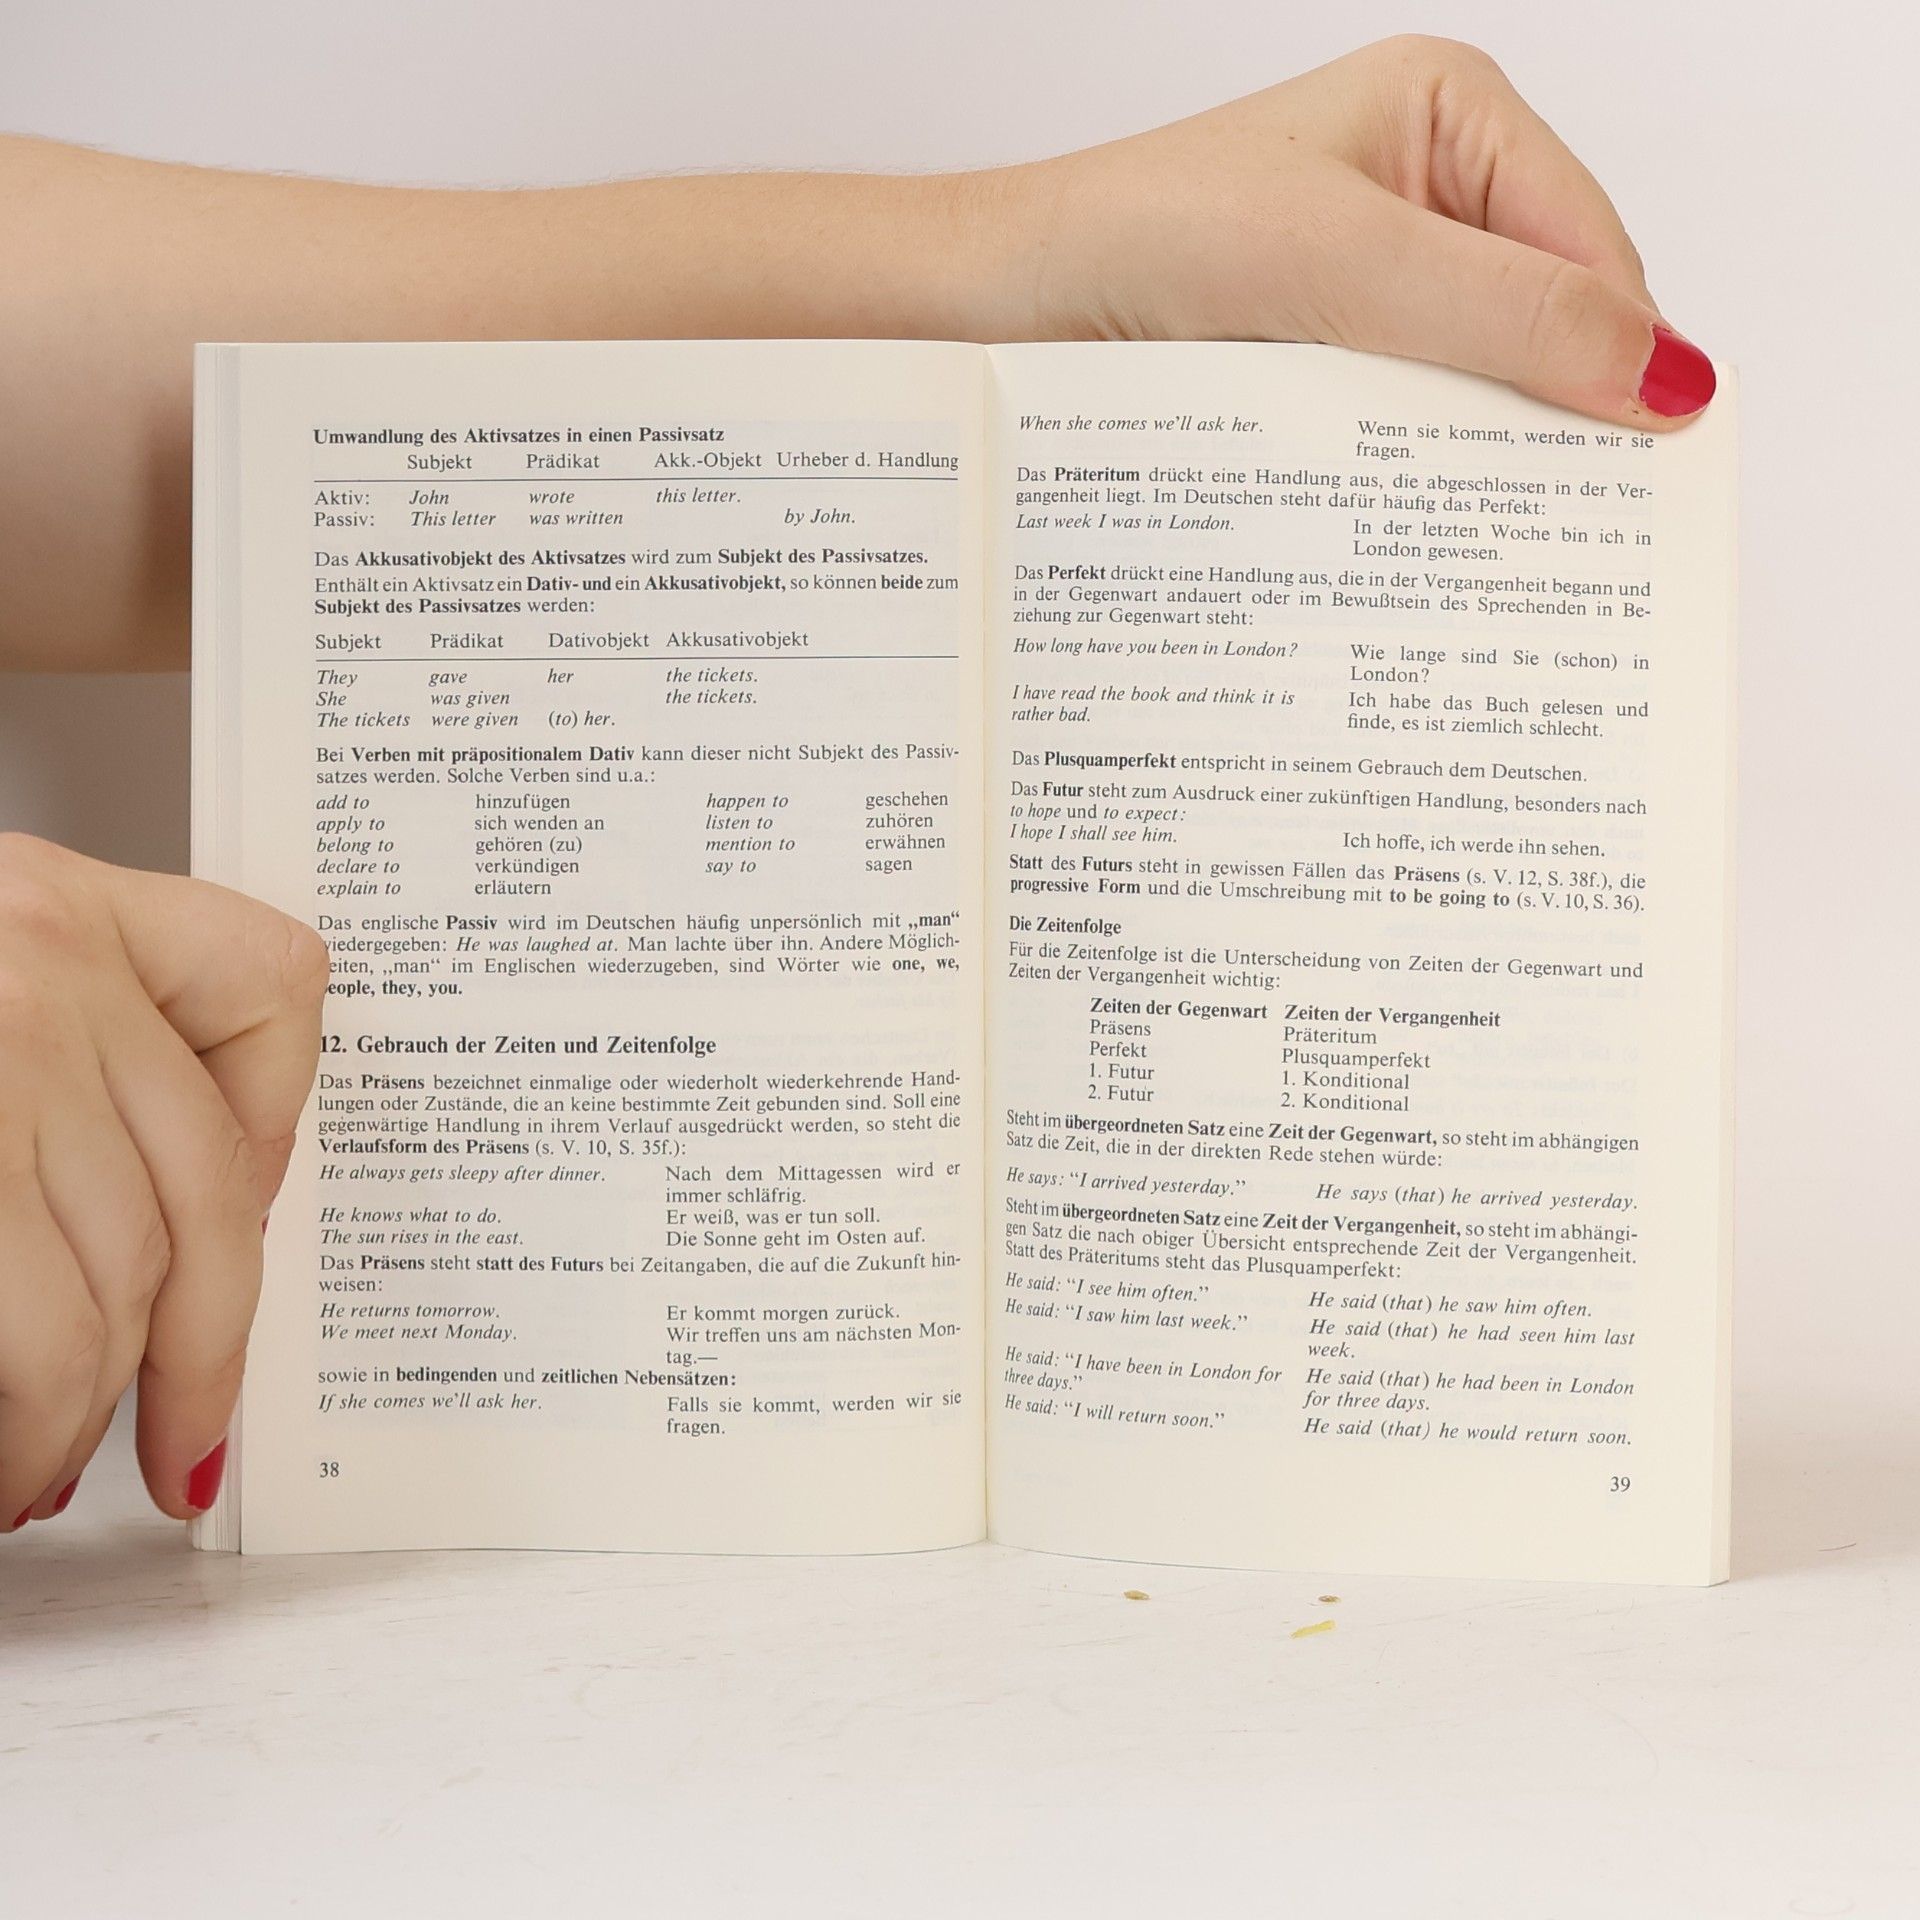 Umwandlung des Aktivsatzes in einen Passivsatz
Subjekt Prädikat Akk.-Objekt Urheber d. Handlung
Aktiv: John wrote this letter.
Passiv: This letter was written by John.
Das Akkusativobjekt des Aktivsatzes wird zum Subjekt des Passivsatzes.
Enthält ein Aktivsatz ein Dativ- und ein Akkusativobjekt, so können beide zum
Subjekt des Passivsatzes werden:
Subjekt Prädikat Dativobjekt Akkusativobjekt
They gave her the tickets.
She was given the tickets.
The tickets were given (to) her.
Bei Verben mit präpositionalem Dativ kann dieser nicht Subjekt des Passiv-
satzes werden. Solche Verben sind u.a.:
add to hinzufügen happen to geschehen
apply to sich wenden an listen to zuhören
belong to gehören (zu) mention to erwähnen
declare to verkündigen say to sagen
explain to erläutern
Das englische Passiv wird im Deutschen häufig unpersönlich mit „man“
wiedergegeben: He was laughed at. Man lachte über ihn. Andere Möglich-
eiten, „man“ im Englischen wiederzugeben, sind Wörter wie one, we,
eople, they, you.
12. Gebrauch der Zeiten und Zeitenfolge
Das Präsens bezeichnet einmalige oder wiederholt wiederkehrende Hand-
lungen oder Zustände, die an keine bestimmte Zeit gebunden sind. Soll eine
gegenwärtige Handlung in ihrem Verlauf ausgedrückt werden, so steht die
Verlaufsform des Präsens (s. V. 10, S. 35f.):
He always gets sleepy after dinner. Nach dem Mittagessen wird er
immer schläfrig.
He knows what to do. Er weiß, was er tun soll.
The sun rises in the east. Die Sonne geht im Osten auf.
Das Präsens steht statt des Futurs bei Zeitangaben, die auf die Zukunft hin-
weisen:
He returns tomorrow. Er kommt morgen zurück.
We meet next Monday. Wir treffen uns am nächsten Mon-
tag.—
sowie in bedingenden und zeitlichen Nebensätzen:
If she comes we'll ask her. Falls sie kommt, werden wir sie
fragen.
38
When she comes we'll ask her. Wenn sie kommt, werden wir sie
fragen.
Das Präteritum drückt eine Handlung aus, die abgeschlossen in der Ver-
gangenheit liegt. Im Deutschen steht dafür häufig das Perfekt:
Last week I was in London. In der letzten Woche bin ich in
London gewesen.
Das Perfekt drückt eine Handlung aus, die in der Vergangenheit begann und
in der Gegenwart andauert oder im Bewußtsein des Sprechenden in Be-
ziehung zur Gegenwart steht:
How long have you been in London? Wie lange sind Sie (schon) in
London?
I have read the book and think it is Ich habe das Buch gelesen und
rather bad. finde, es ist ziemlich schlecht.
Das Plusquamperfekt entspricht in seinem Gebrauch dem Deutschen.
Das Futur steht zum Ausdruck einer zukünftigen Handlung, besonders nach
to hope und to expect:
I hope I shall see him. Ich hoffe, ich werde ihn sehen.
Statt des Futurs steht in gewissen Fällen das Präsens (s. V. 12, S. 38f.), die
progressive Form und die Umschreibung mit to be going to (s. V. 10, S. 36).
Die Zeitenfolge
Für die Zeitenfolge ist die Unterscheidung von Zeiten der Gegenwart und
Zeiten der Vergangenheit wichtig:
Zeiten der Gegenwart Zeiten der Vergangenheit
Präsens Präteritum
Perfekt Plusquamperfekt
1. Futur 1. Konditional
2. Futur 2. Konditional
Steht im übergeordneten Satz eine Zeit der Gegenwart, so steht im abhängigen
Satz die Zeit, die in der direkten Rede stehen würde:
He says: “I arrived yesterday.” He says (that) he arrived yesterday.
Steht im übergeordneten Satz eine Zeit der Vergangenheit, so steht im abhängi-
gen Satz die nach obiger Übersicht entsprechende Zeit der Vergangenheit.
Statt des Präteritums steht das Plusquamperfekt:
He said: “I see him often.” He said (that) he saw him often.
He said: “I saw him last week.” He said (that) he had seen him last
week.
He said: “I have been in London for He said (that) he had been in London
three days.” for three days.
He said: “I will return soon.” He said (that) he would return soon.
39